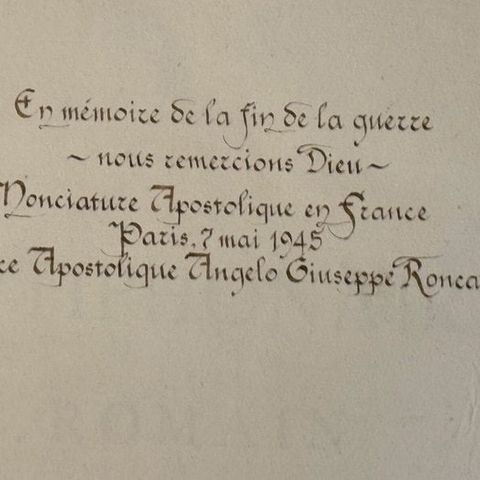 En mémoire de la fin de la guerre
~ nous remercions Dieu ~
Nonciature Apostolique en France
Paris, 7 mai 1945
ce Apostolique Angelo Giuseppe Ronca
ROMAIN